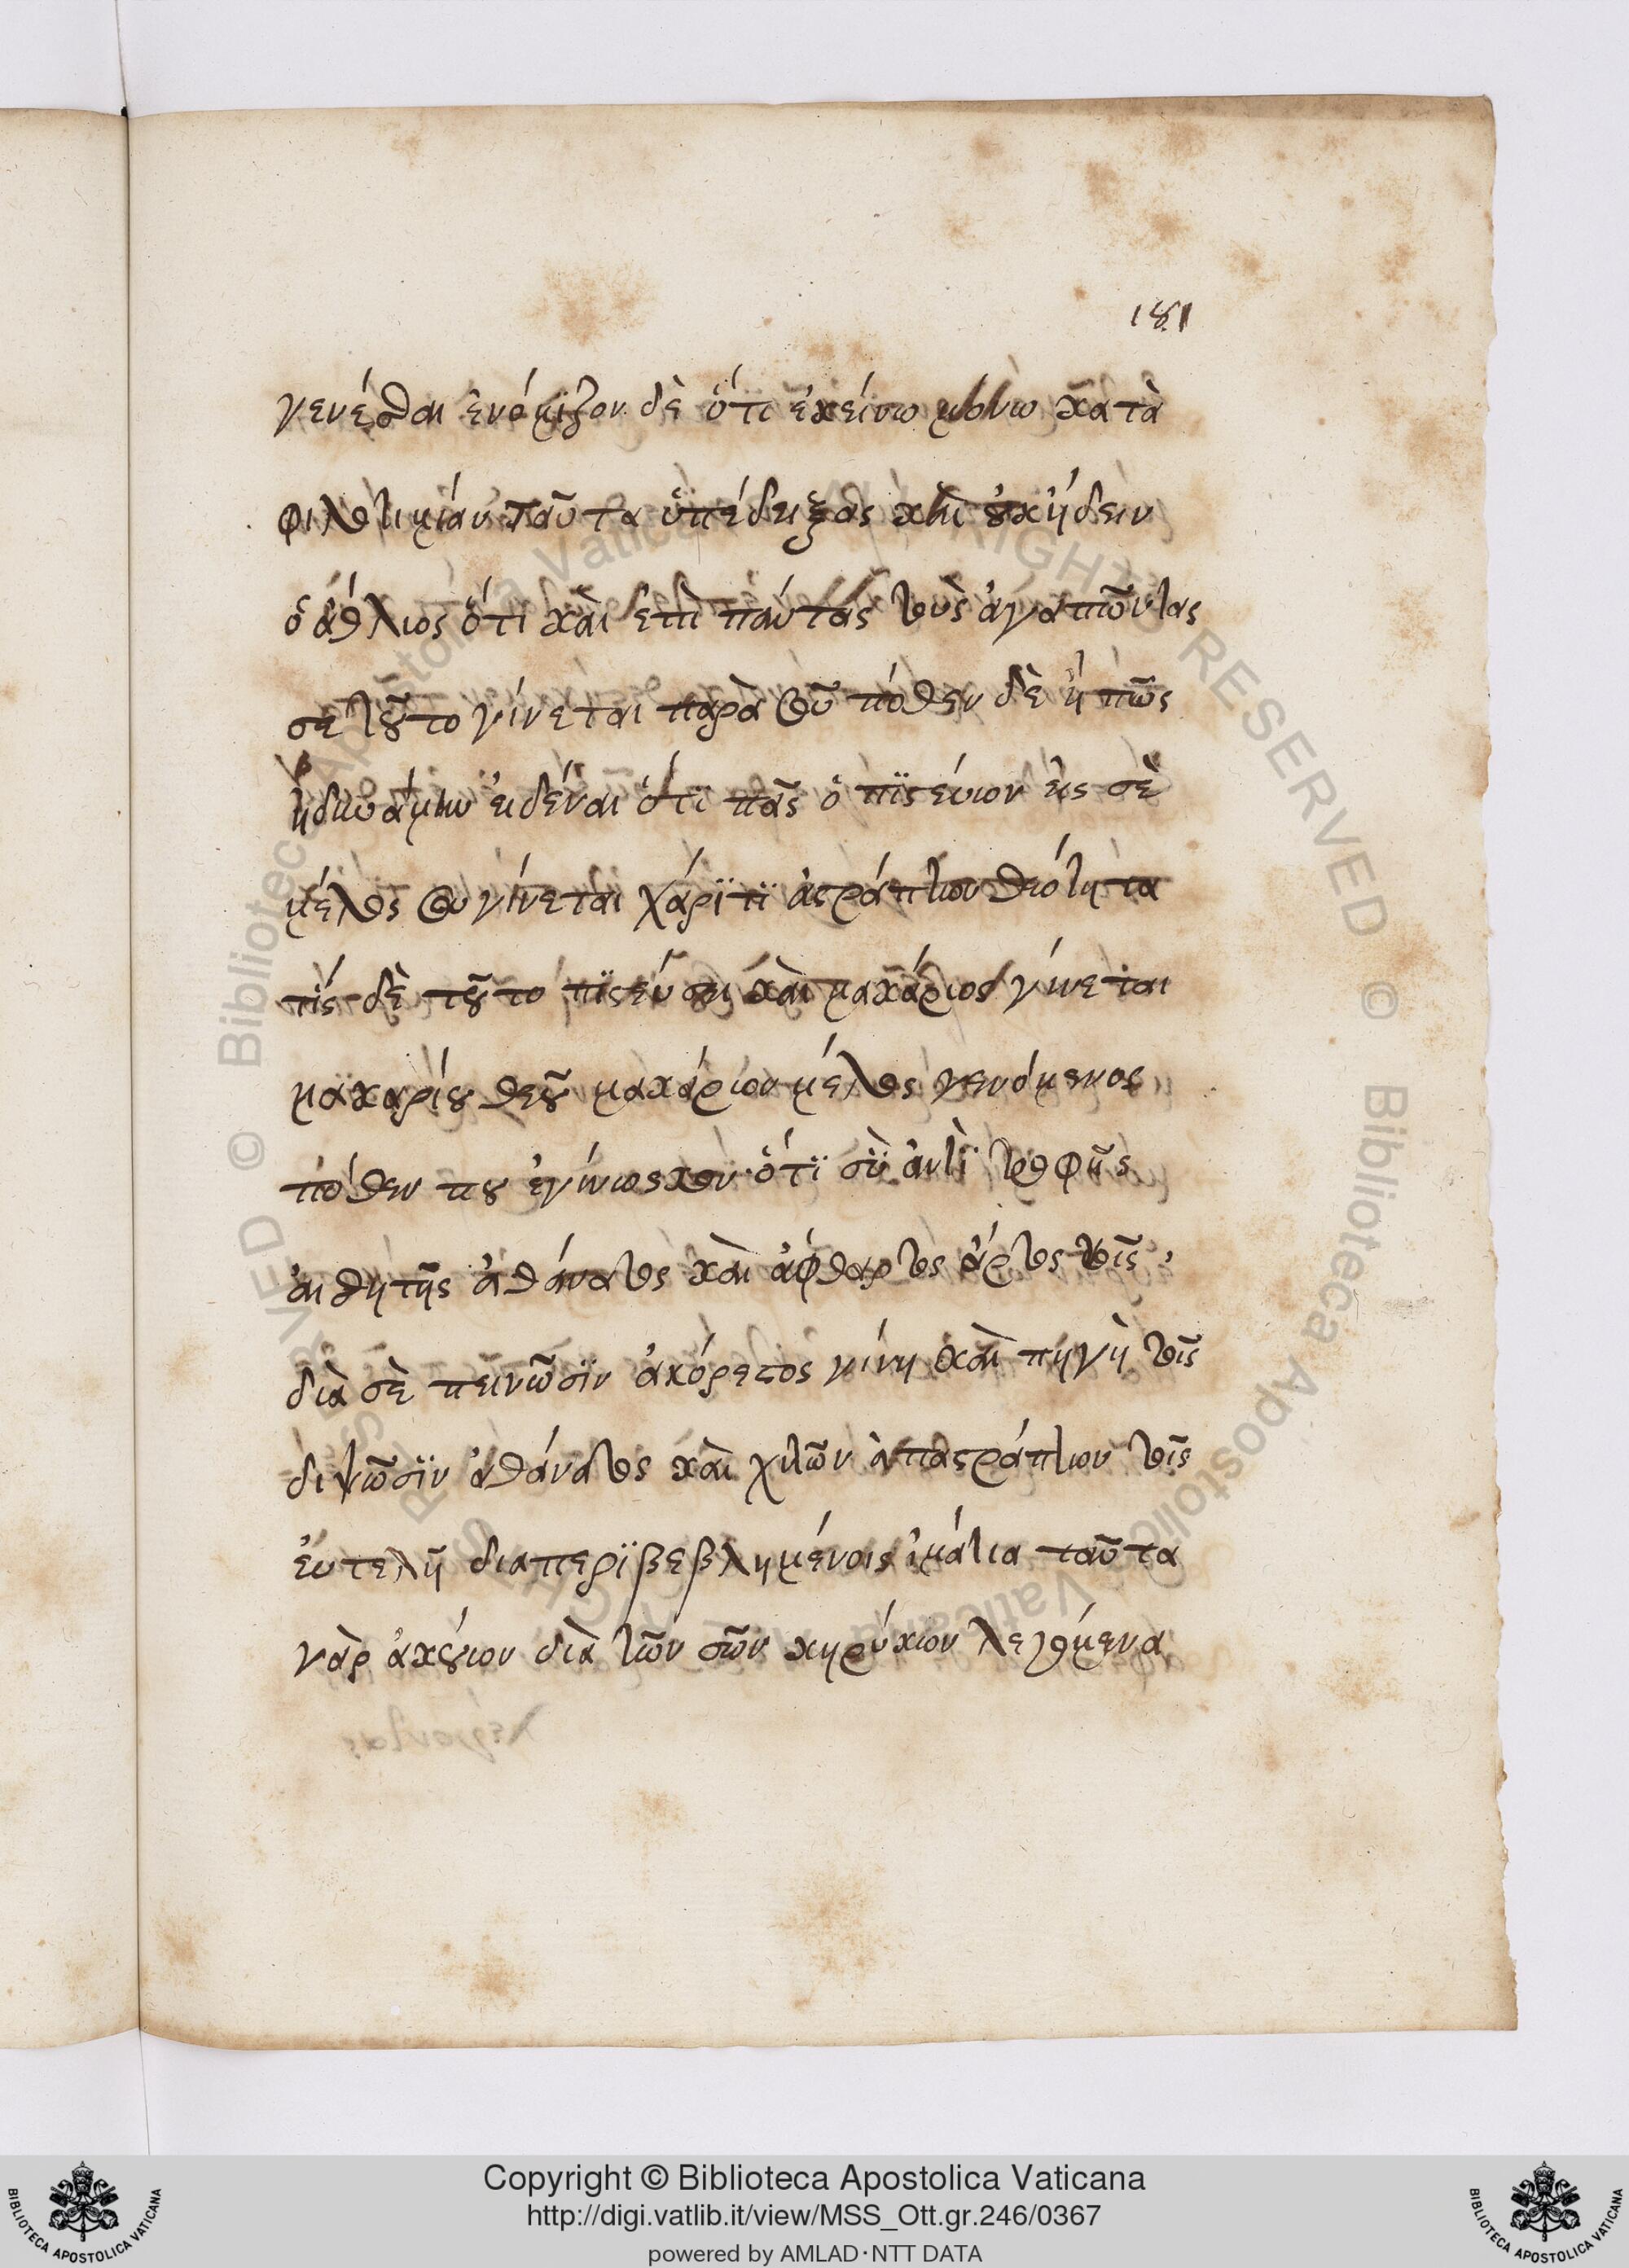 181
γενέσθαι ἐνόμιζον δὲ ὅτι ἐκείνω μόνω κατὰ
φιλοτιμίαν ταῦτα ὑπέδειξας καὶ οὐκ ἤδειν
ὁ ἄθλιος ὅτι καὶ ἐπὶ πάντας τοὺς ἀγαπῶντας
σε τοῦτο γίνεται παρὰ σοῦ πόθεν δὲ ἢ πῶς
ἠδυνάμην εἰδέναι ὅτι πᾶς ὁ πιστεύων εἰς σὲ
μέλος σου γίνεται χάριτι ἀστράπτων θεότητα
τίς δὲ τοῦτο πιστεύσει καὶ μακάριος γίνεται
μακαρίου θεοῦ μακάριον μέλος γενόμενος
πόθεν που ἐγίνωσκον ὅτι σὺ ἀντὶ τροφῆς
αἰσθητῆς ἀθάνατος καὶ ἄφθαρτος ἄρτος τοῖς
διὰ σὲ πεινῶσιν ἀκόρεστος γίνη καὶ πηγὴ τοῖς
διψῶσιν ἀθάνατος καὶ χιτῶν ἀπαστράπτων τοῖς
εὐτελῆ διαπεριβεβλημένοις ἱμάτια ταῦτα
γὰρ ἀκούων διὰ τῶν σῶν κηρύκων λεγόμενα
Copyright © Biblioteca Apostolica Vaticana
http://digi.vatlib.it/view/MSS_Ott.gr.246/0367
powered by AMLAD·NTT DATA
BIBLIOTECA APOSTOLICA VATICANA
BIBLIOTECA APOSTOLICA VATICANA